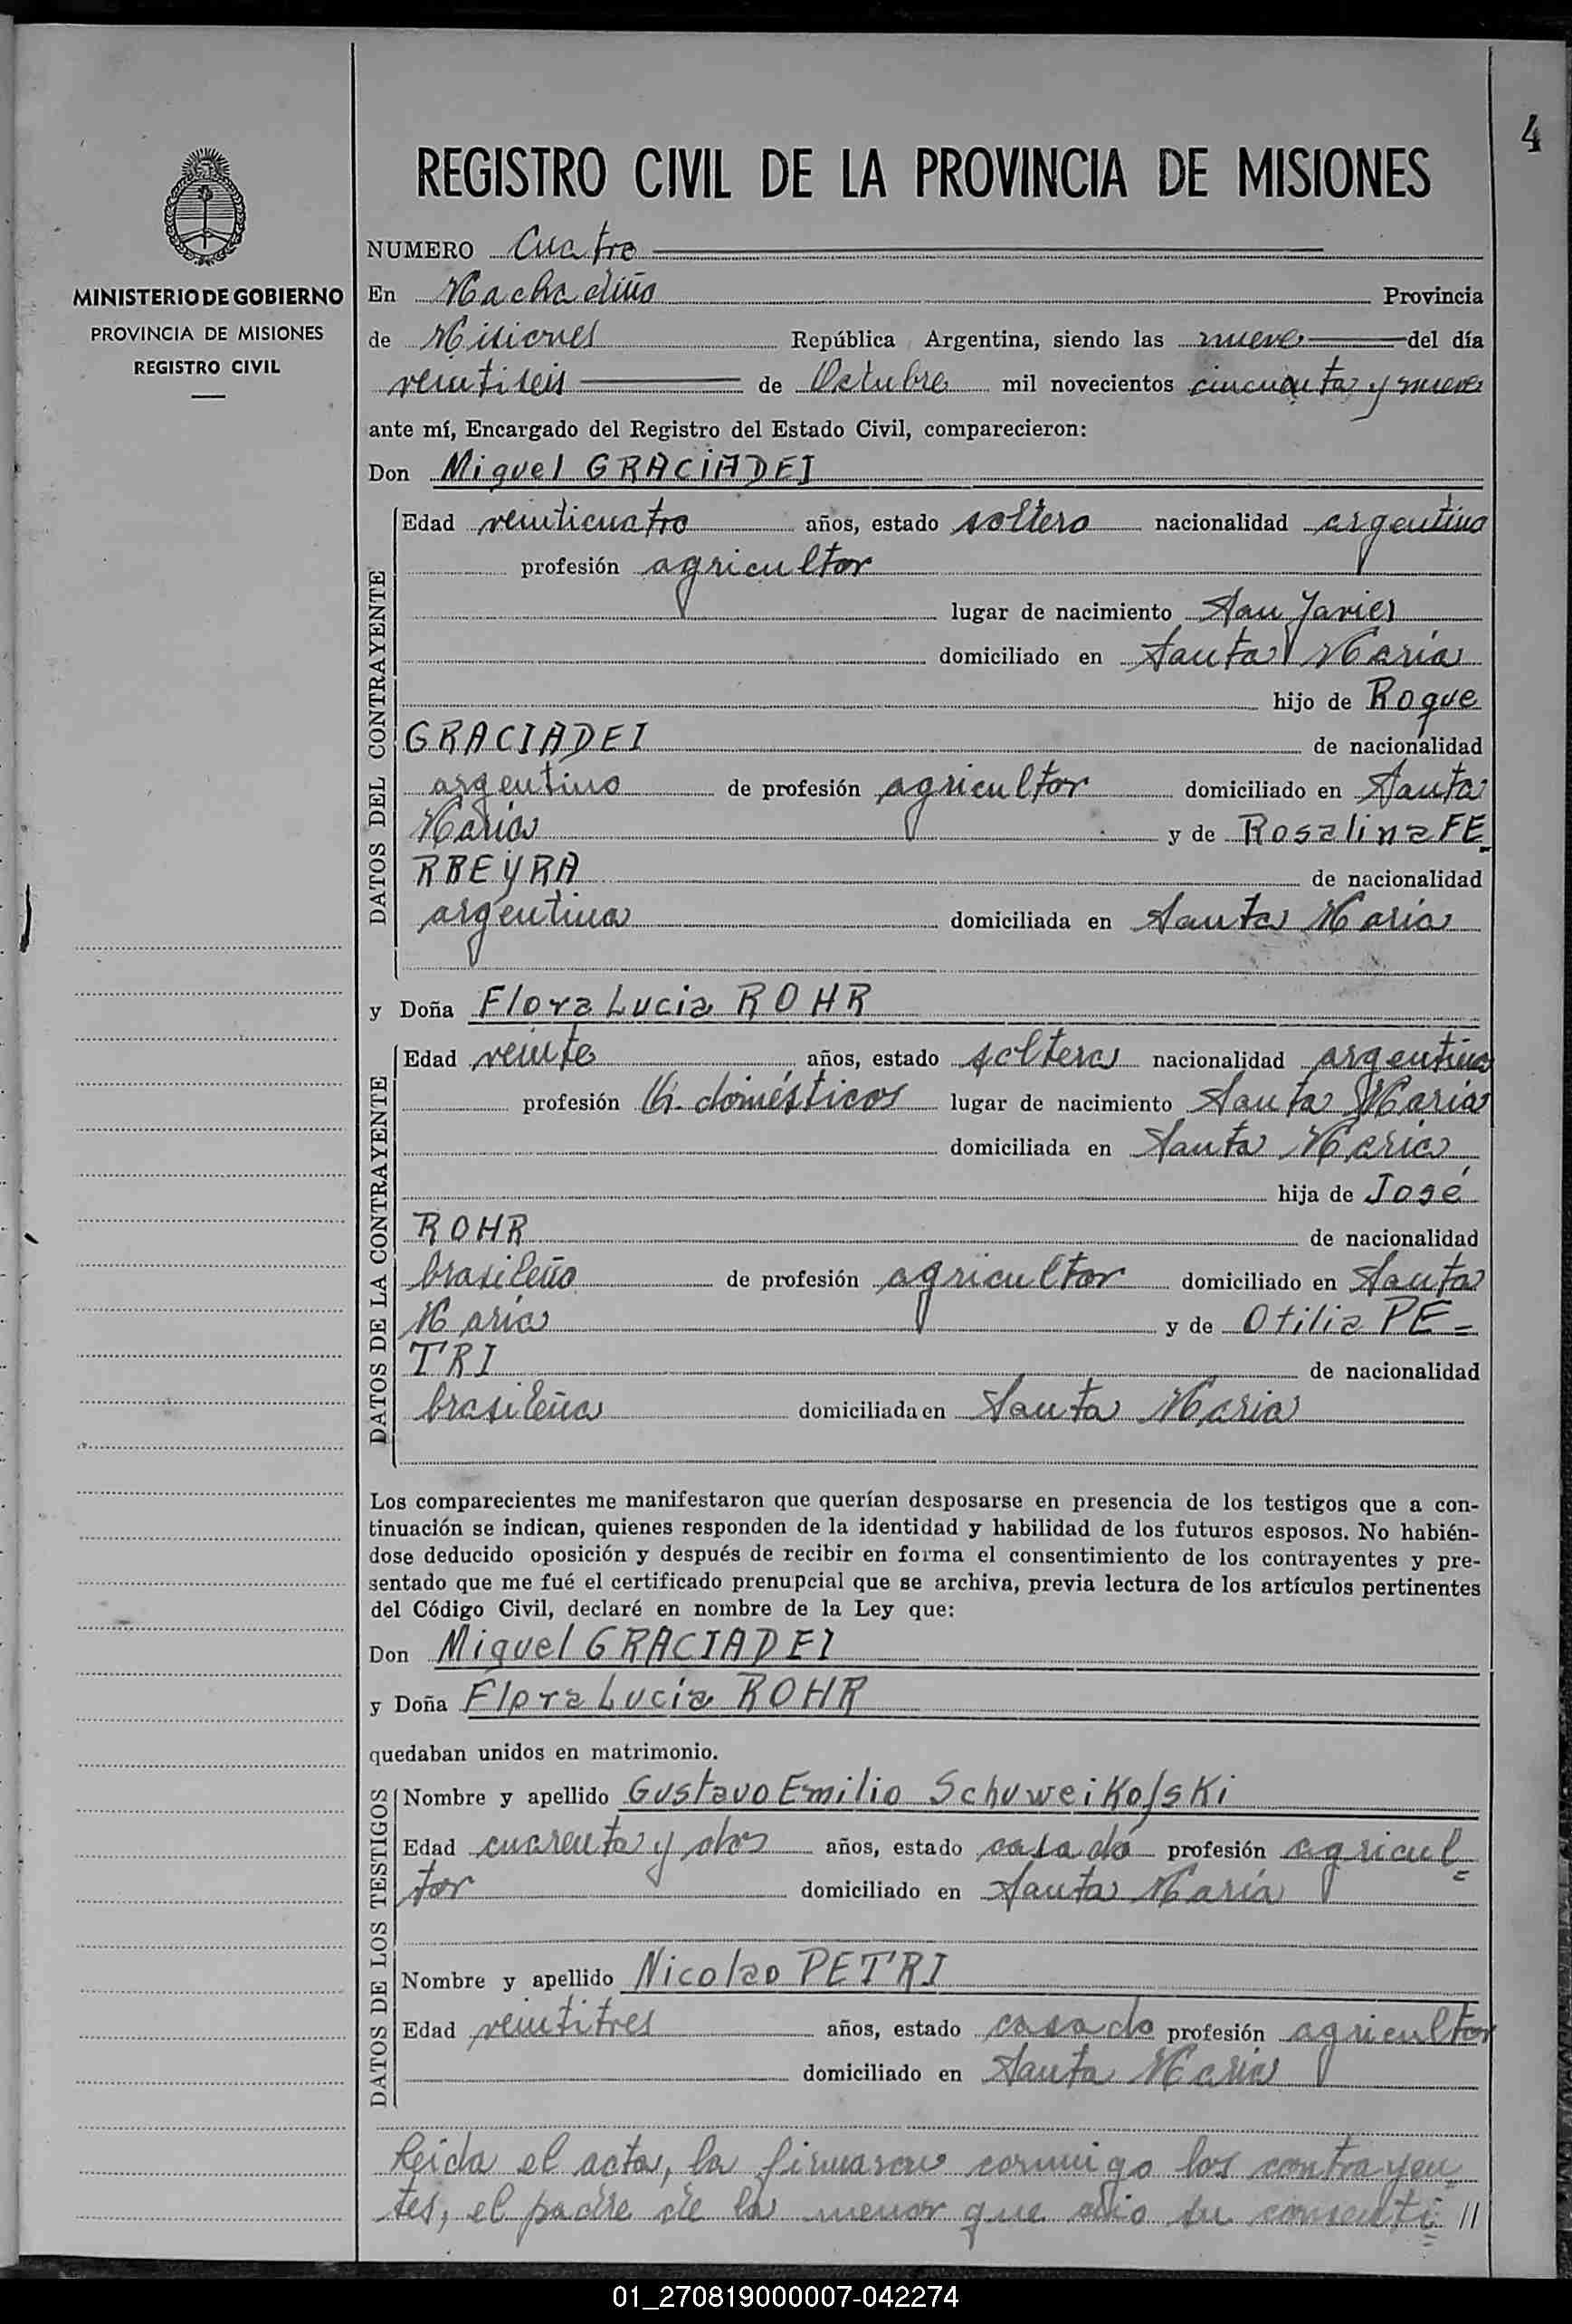 4
REGISTRO CIVIL DE LA PROVINCIA DE MISIONES
MINISTERIO DE GOBIERNO
PROVINCIA DE MISIONES
REGISTRO CIVIL
NUMERO Cuatro
En Machadiño Provincia
de Misiones República Argentina, siendo las nueve del día
veintiseis de Octubre mil novecientos cincuenta y nueve
ante mí, Encargado del Registro del Estado Civil, comparecieron:
Don Miguel GRACIADEI
DATOS DEL CONTRAYENTE
Edad veinticuatro años, estado soltero nacionalidad argentino
profesión agricultor
lugar de nacimiento San Javier
domiciliado en Santa María
hijo de Roque
GRACIADEI de nacionalidad
argentino de profesión agricultor domiciliado en Santa
María y de Rosalina FE
RREYRA de nacionalidad
argentina domiciliada en Santa María
y Doña Flora Lucia ROHR
DATOS DE LA CONTRAYENTE
Edad veinte años, estado soltera nacionalidad argentina
profesión domésticos lugar de nacimiento Santa María
domiciliada en Santa María
hija de José
ROHR de nacionalidad
brasileño de profesión agricultor domiciliado en Santa
María y de Otilia PE=
TRI de nacionalidad
brasileña domiciliada en Santa Maria
Los comparecientes me manifestaron que querían desposarse en presencia de los testigos que a con-
tinuación se indican, quienes responden de la identidad y habilidad de los futuros esposos. No habién-
dose deducido oposición y después de recibir en forma el consentimiento de los contrayentes y pre-
sentado que me fué el certificado prenupcial que se archiva, previa lectura de los artículos pertinentes
del Código Civil, declaré en nombre de la Ley que:
Don Miguel GRACIADEI
y Doña Flora Lucía ROHR
quedaban unidos en matrimonio.
DATOS DE LOS TESTIGOS
Nombre y apellido Gustavo Emilio Schuweikofski
Edad cuarenta y dos años, estado casado profesión agricul=
tor domiciliado en Santa María
Nombre y apellido Nicolao PETRI
Edad veintitres años, estado casado profesión agricultor
domiciliado en Santa María
Leida el acta, la firmaron conmigo los contrayen=
tes, el padre de la menor que dio su consenti= //
01_270819000007-042274